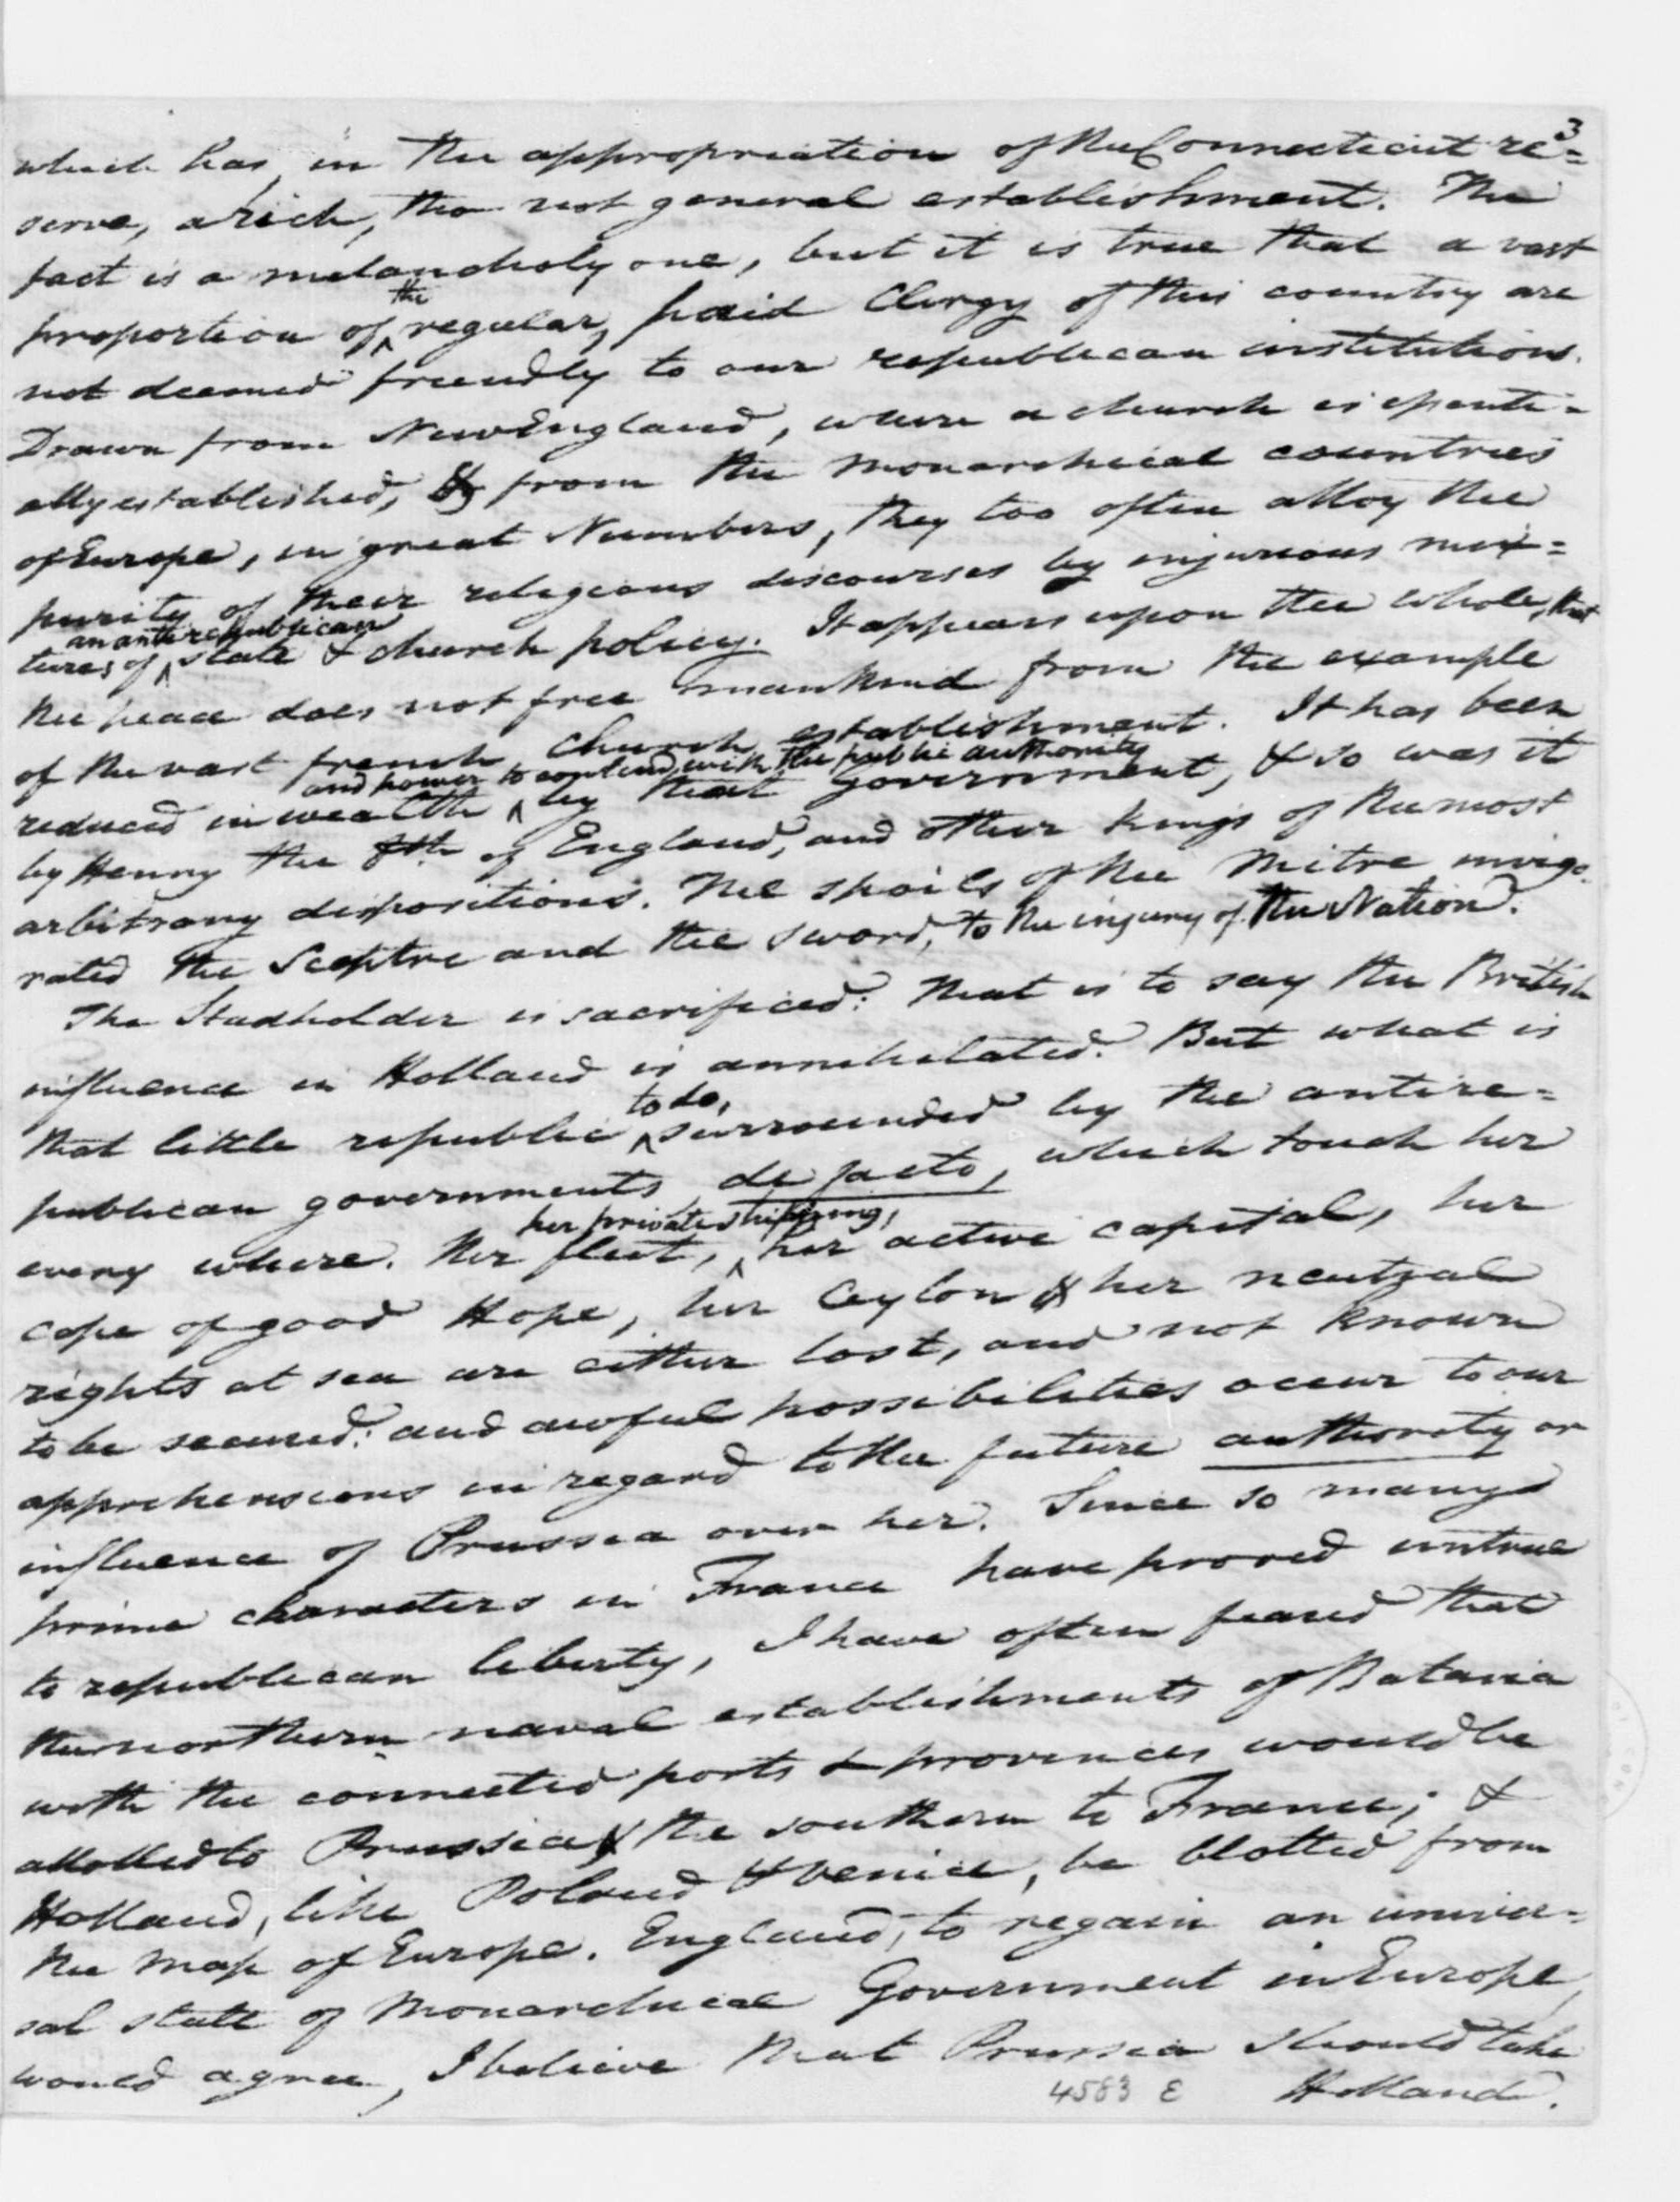 3
which has, in the appropriation of the Connecticut re=
serve, a rich, tho not general establishment. The
fact is a melancholy one, but it is true that a vast
the
proportion of regular, paid Clergy of this country are
not deemed friendly to our republican institutions.
Drawn from New England, where a church is essenti=
ally established, & from the monarchical countries
of Europe, in great Numbers, they too often alloy the
purity of their religious discourses by injurious mix=
an antirepublican
tures of state & church policy. It appears upon the whole, that
the peace does not free mankind from the example
of the vast french church establishment. It has been
and power to contend with the public authority
reduced in wealth by that government, & so was it
by Henry the 8th of England, and other kings of the most
arbitrary dispositions. The spoils of the Mitre invigo-
rated the Sceptre and the sword, to the injury of the Nation.
The Stadholder is sacrificed: that is to say the British
influence in Holland is annihilated. But what is
to do,
that little republic surrounded by the antire=
publican governments, de facto, which touch her
every where. Her fleet, her active capital, her
her private shipping,
cape of good Hope, her Ceylon & her neutral
rights at sea are either lost, and not known
to be secured: and awful possibilities occur to our
apprehensions in regard to the future authority or
influence of Prussia over her. Since so many
prime characters in France have proved untrue
to republican liberty, I have often feared that
the northern naval establishments of Batavia
with the connected ports & provinces would be
allotted to Prussia & the southern to France; &
Holland, like Poland & Venice, be blotted from
the map of Europe. England, to regain an univer=
sal state of Monarchical Government in Europe,
would agree, I believe that Prussia should take
4583 E Holland.